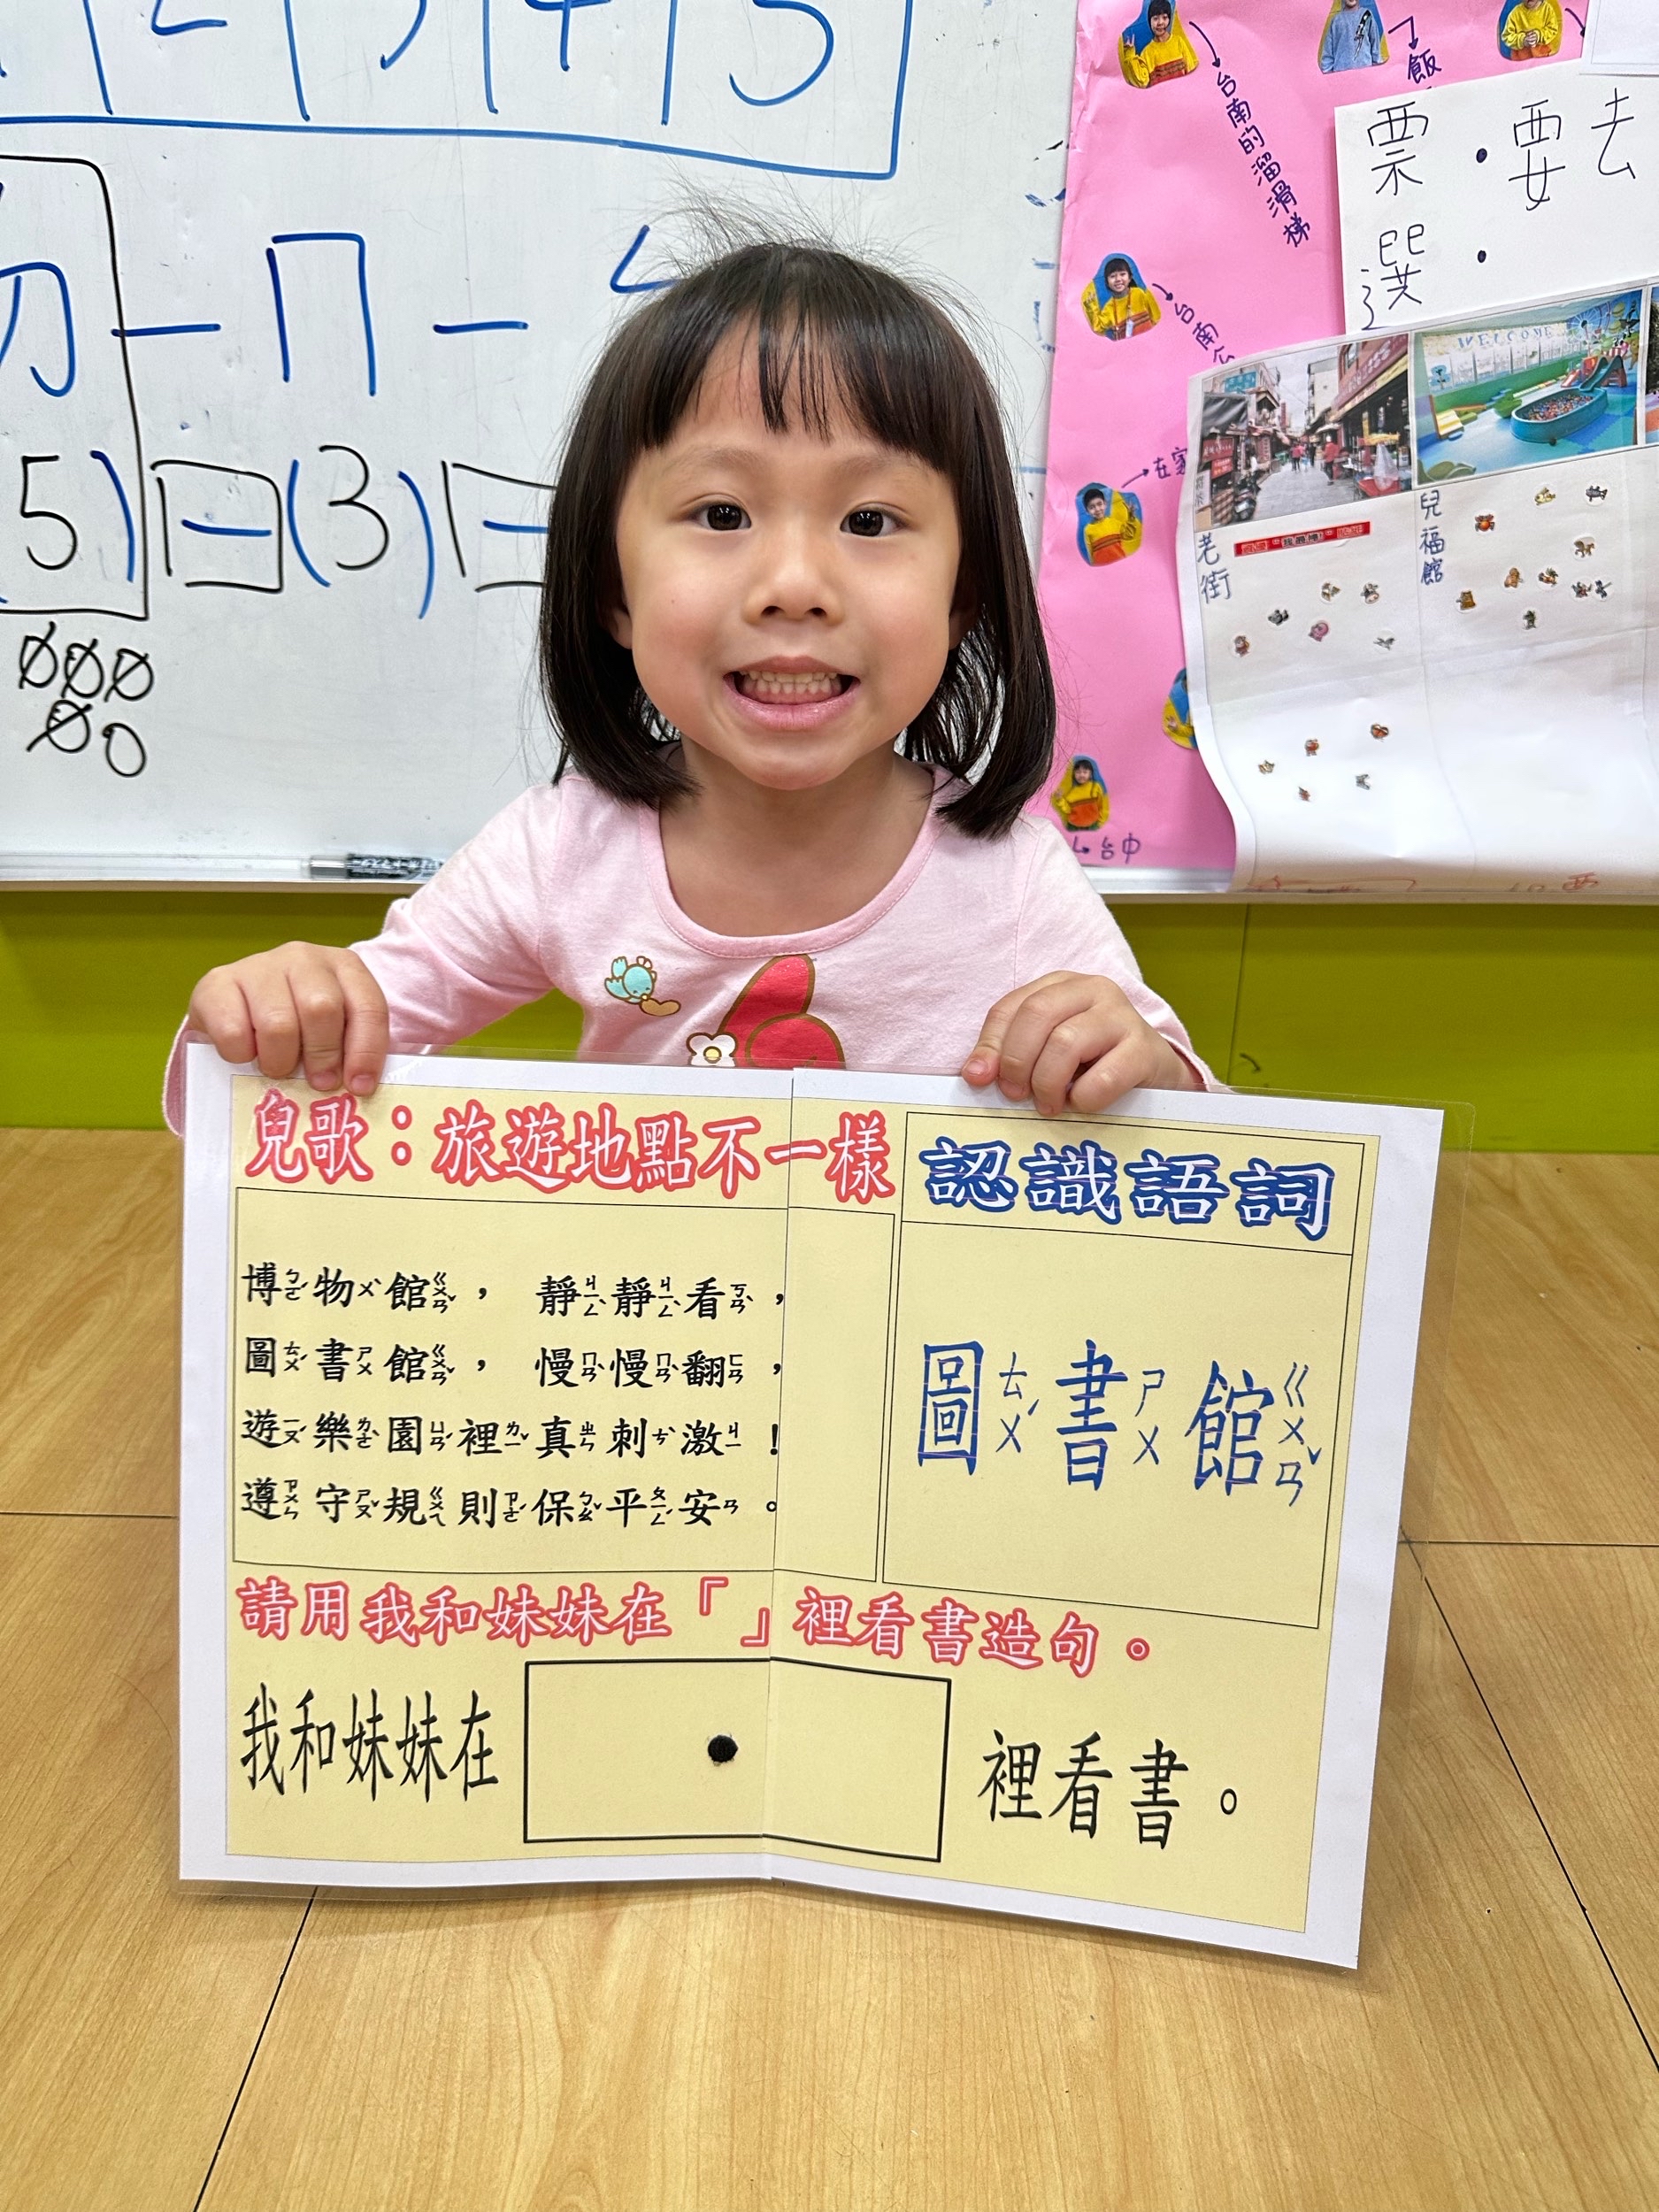 2 3 4 5
ㄇ
5) (3)
台南的溜滑梯
飯
票・要去
選・
台南
在家
WELCOME
老街
兒福館
台中
兒歌：旅遊地點不一樣
認識語詞
博ㄅㄛˊ物ㄨˋ館ㄍㄨㄢˇ， 靜ㄐㄧㄥˋ靜ㄐㄧㄥˋ看ㄎㄢˋ，
圖ㄊㄨˊ書ㄕㄨ館ㄍㄨㄢˇ， 慢ㄇㄢˋ慢ㄇㄢˋ翻ㄈㄢ，
遊ㄧㄡˊ樂ㄌㄜˋ園ㄩㄢˊ裡ㄌㄧˇ真ㄓㄣ刺ㄘˋ激ㄐㄧ！
遵ㄗㄨㄣ守ㄕㄡˇ規ㄍㄨㄟ則ㄗㄜˊ保ㄅㄠˇ平ㄆㄧㄥˊ安ㄢ。
圖ㄊㄨˊ書ㄕㄨ館ㄍㄨㄢˇ
請用我和妹妹在「 」裡看書造句。
我和妹妹在 裡看書。